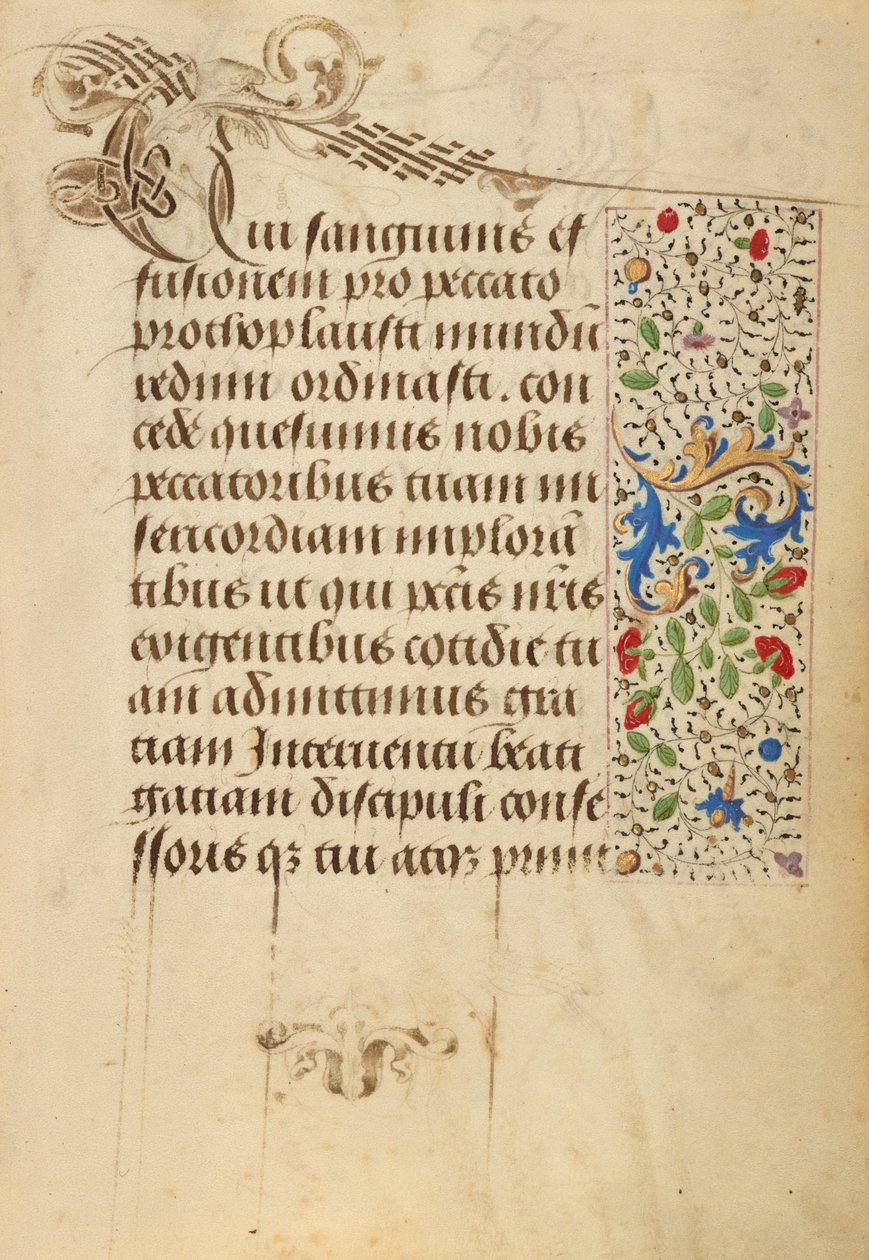 Tui sanguinis ef
fusionem pro peccato
prothoplausti mundū
redimi ordinasti . con
cede quesumus nobis
peccatoribus tuam mi
sericordiam implorā
tibus ut qui pctīs nr̄is
exigentibus cotidie tu
am admittimus gra
tiam Interuentu beati
gatiani discipuli confe
ssoris qꝫ tui atqꝫ primi